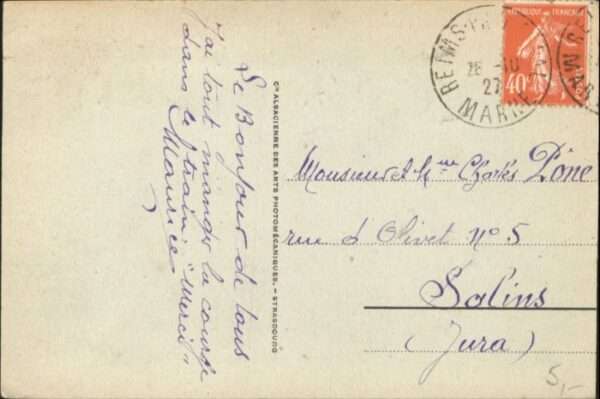 Le Bonjour de tous
J'ai tout mangé la courge
dans le train. "Merci"
Maurice
Cie ALSACIENNE DES ARTS PHOTOMÉCANIQUES. – STRASBOURG
REIMS
MARNE
28 -10
27
REPUBLIQUE FRANÇAISE
40c
MAR
Monsieur et Mme Charles Pône
rue d'Olivet N° 5
Salins
(Jura)
5,-